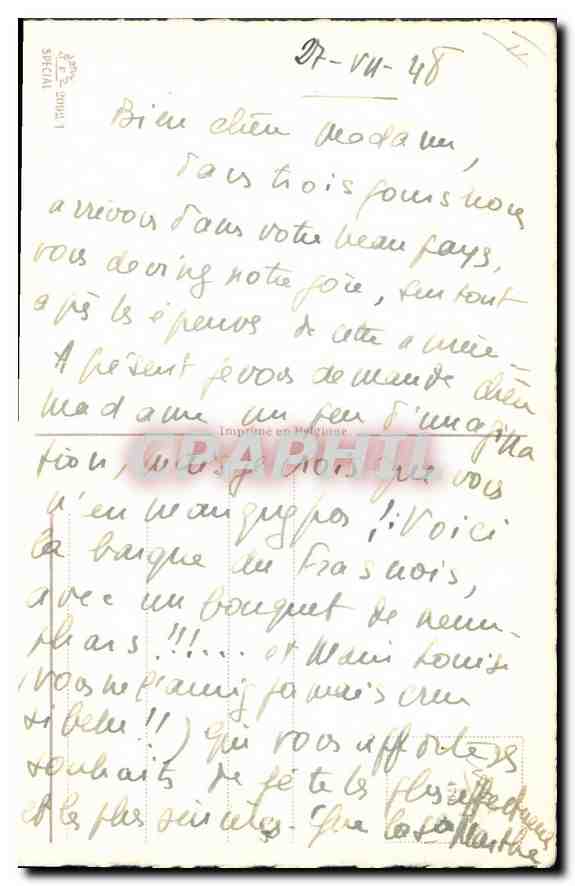 SPECIAL
27-VII-48
Bien chère Madame,
Dans trois jours nous
arrivons dans votre beau pays,
vous devinez notre joie, surtout
après les épreuves de cette année -
A présent je vous demande chère
madame un peu d'imagina
Imprimé en Belgique
CPAPHIL
tion, mais je crois que vous
n'en manquez pas !: Voici
la barque du Frasnois,
avec un bouquet de nénu-
phars !!!... et Marie Louise
(vous ne l'auriez jamais crue
si belle !!) Qui vous apporte ses
souhaits de fête les plus affectueux
et les plus sincères. Que la Ste Marthe